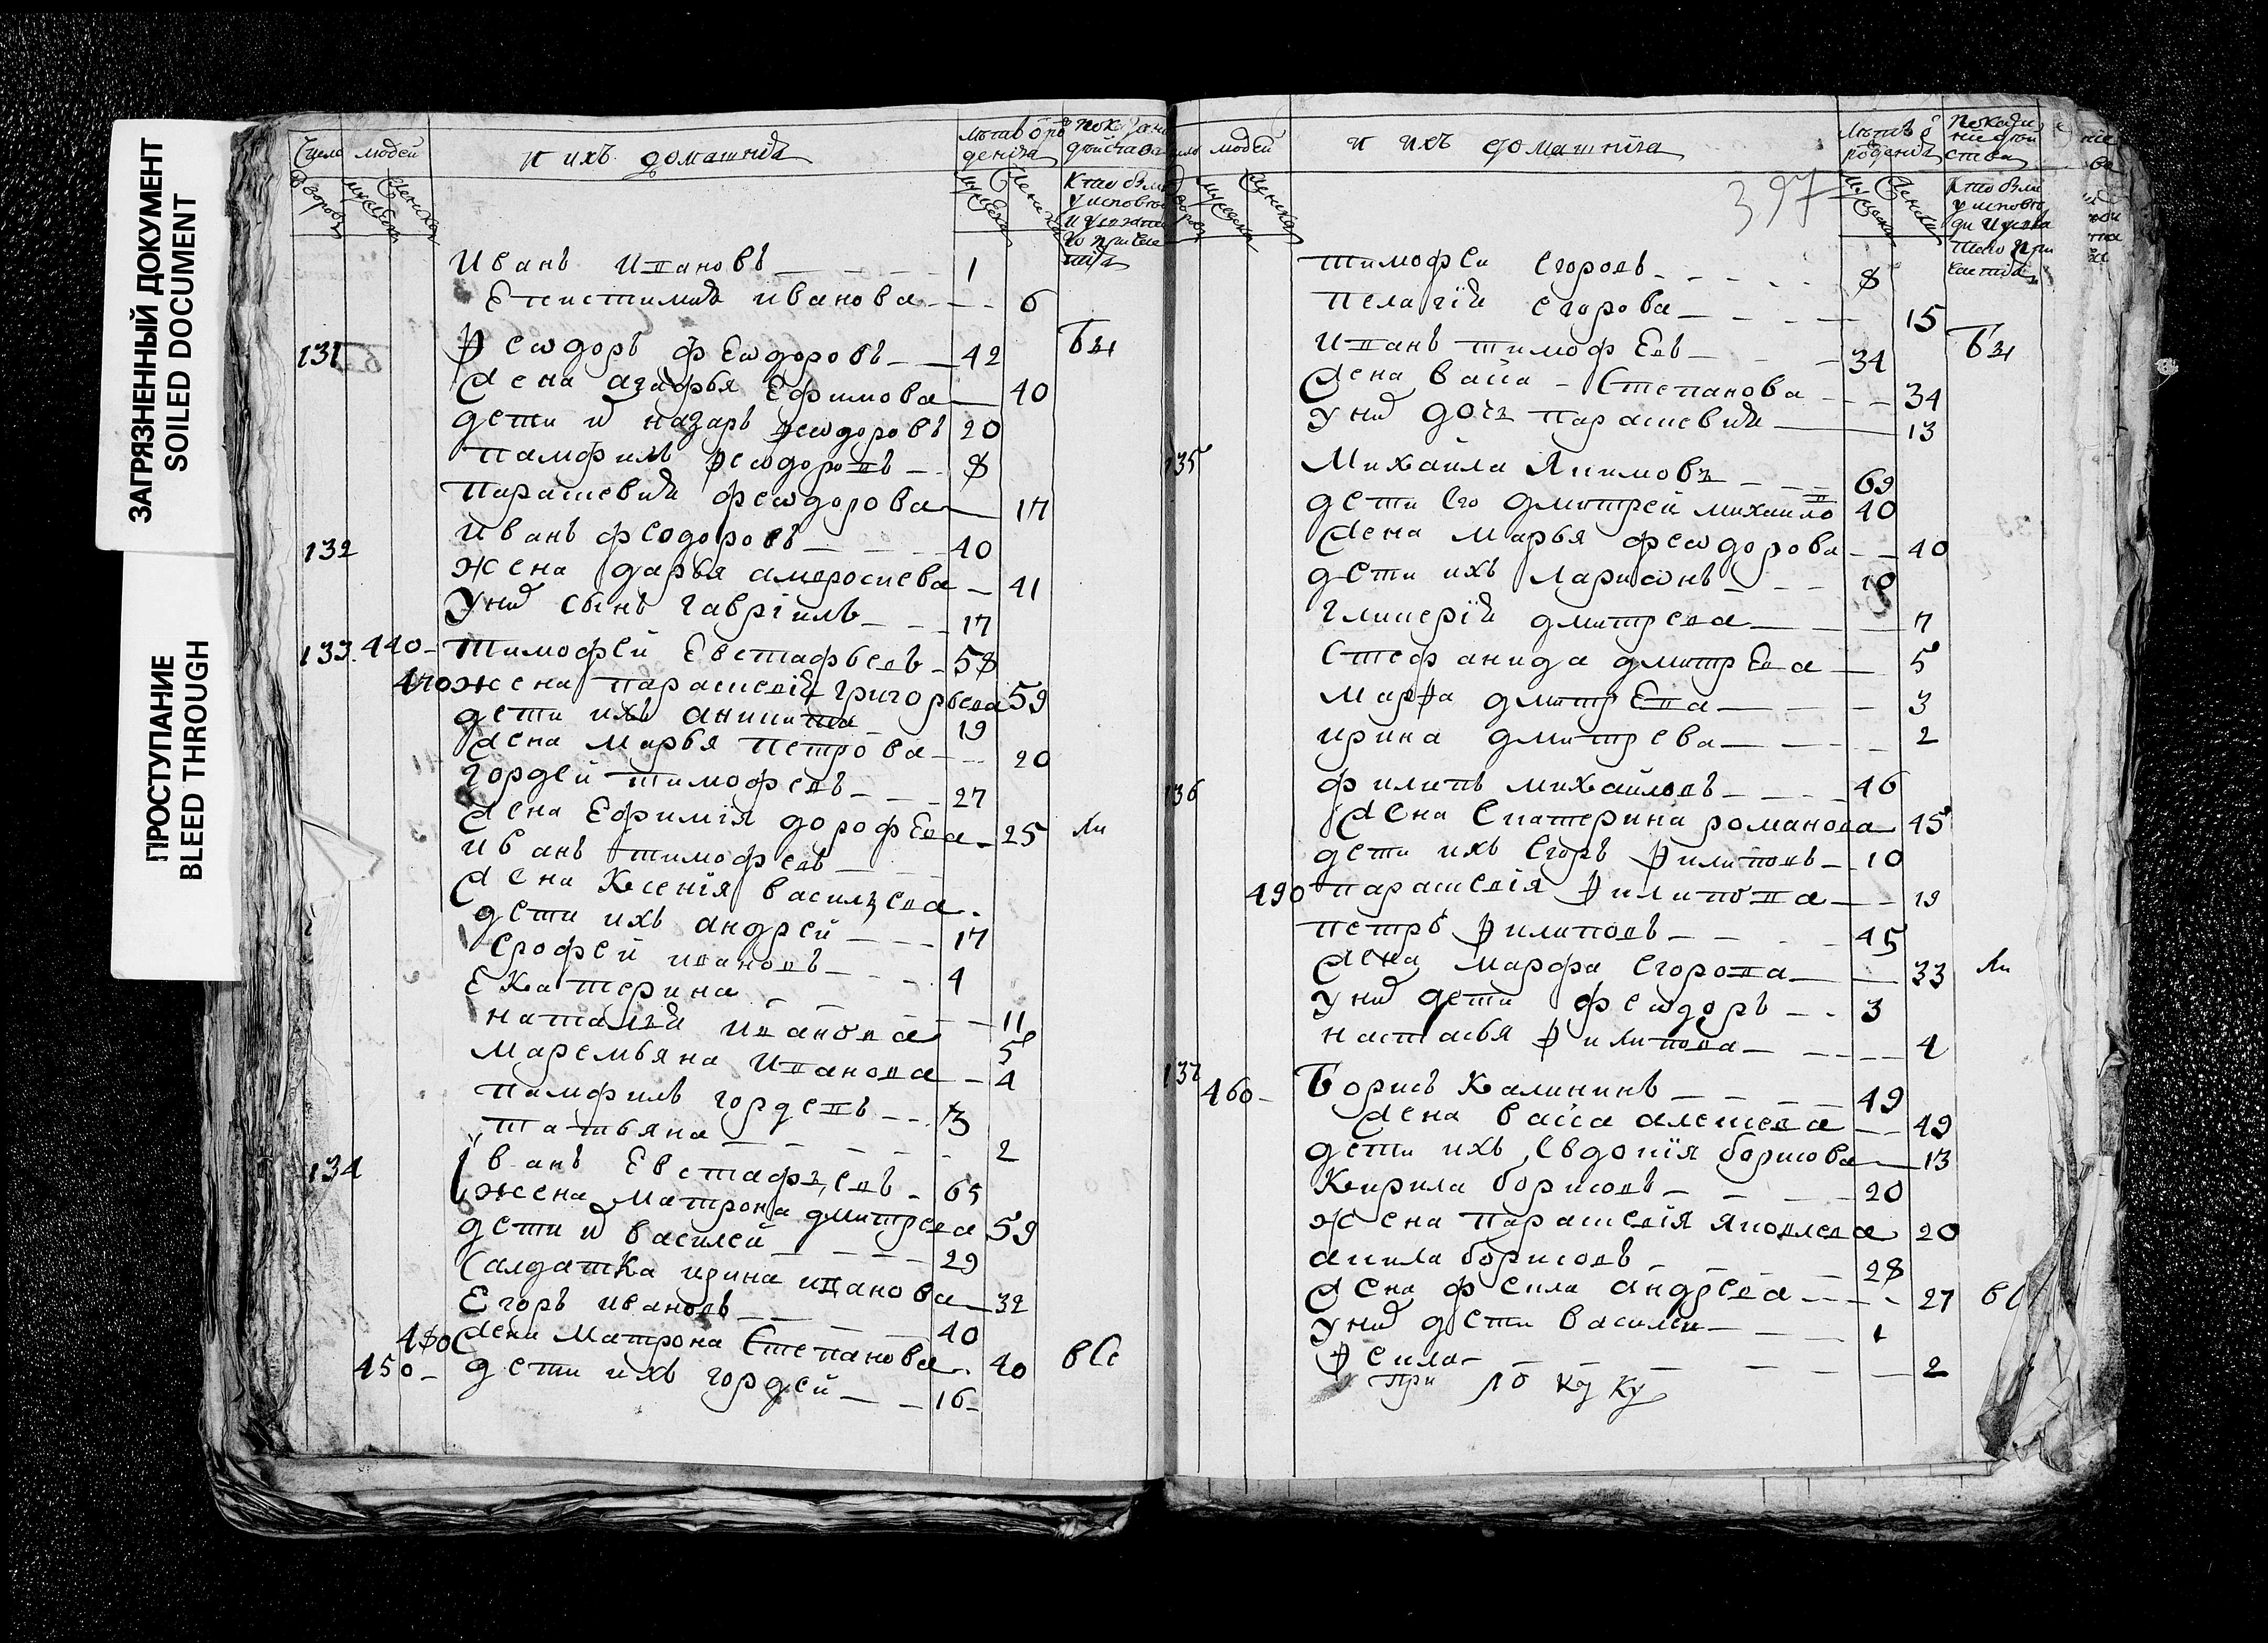 ЗАГРЯЗНЕННЫЙ ДОКУМЕНТ
SOILED DOCUMENT
ПРОСТУПАНИЕ
BLEED THROUGH
Число людей и ихъ домашнія
Иванъ Ивановъ 1
Епистимия иванова 6
131 Ѳеѡдоръ феѡдоровъ 42 бы
Жена агафья Ефимова 40
дети и назаръ ѳеѡдоровъ 20
памфилъ ѳеѡдоровъ 8
парасковия феѡдорова 17
132 иванъ феодоровъ 40
жена дарья амвросиева 41
у нихъ сынъ гавріилъ 17
133 440 Тимофей Евстафьевъ 58
470 жена парасковія григорьева 59
дети ихъ аникита 19
жена марья петрова 20
гордей тимофевъ 27
жена Ефимія дорофеева 25
иванъ тимофеевъ
жена Ксенія василева
дети ихъ андрей 17
ерофей ивановъ 4
Екатерина 11
наталия иванова 5
маремьяна иванова 4
памфилъ гордевъ 3
татьяна 2
134 Иванъ Евстафьевъ 65
жена матрона дмитрева 59
дети и василей 29
салдатка ирина иванова 32
Егоръ ивановъ 40
480 жена матрона Степанова 40
450 дети ихъ гордей 16
людей и ихъ домашнія
397
тимофей егоровъ 8
пелагія егорова 15
иванъ тимофеевъ 34 бы
жена васса Степанова 34
у нихъ дочь парасковия 13
135 Михаила Якимовъ 69
дети его дмитрей михаило 40
жена марья феѡдорова 40
дети ихъ ларионъ 10
гликерія дмитрева 7
стефанида дмитрева 5
марѳа дмитрева 3
ирина дмитрева 2
136 филипъ михайловъ 46
жена екатерина романова 45
дети ихъ егоръ ѳилиповъ 10
490 парасковія ѳилипова 19
петръ ѳилиповъ 45
жена марфа егорова 33
у нихъ дети феѡдоръ 3
настасья ѳилипова 4
137 460 Борисъ Калининъ 49
жена васса алексева 49
дети ихъ евдокія борисова 13
Кирила борисовъ 20
жена парасковія яковлева 20
акила борисовъ 28
жена фекла андрева 27
у нихъ дети василей 1
Ѳекла 2